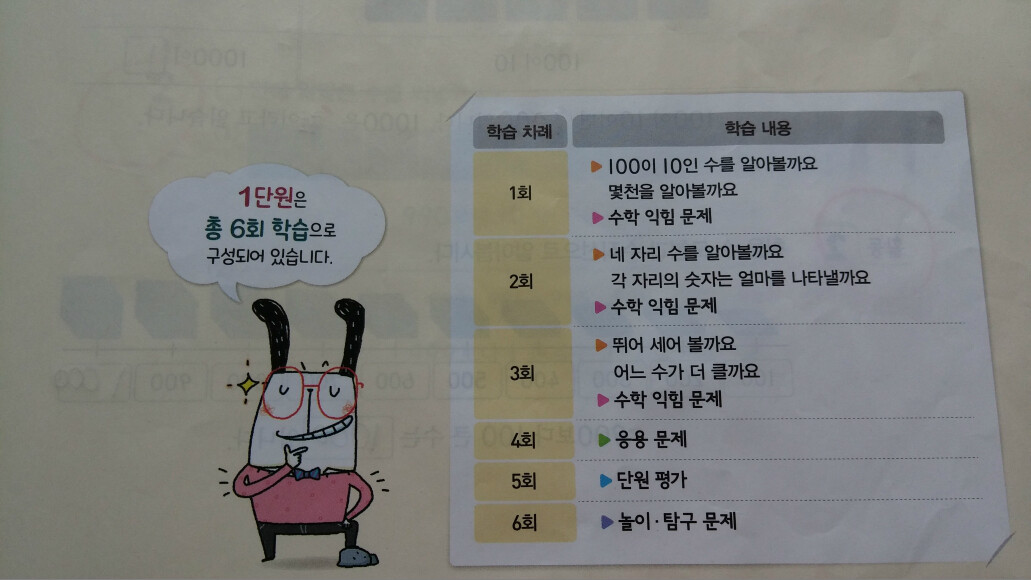 1단원은
총 6회 학습으로
구성되어 있습니다.
학습 차례 학습 내용
1회
100이 10인 수를 알아볼까요
몇천을 알아볼까요
수학 익힘 문제
2회
네 자리 수를 알아볼까요
각 자리의 숫자는 얼마를 나타낼까요
수학 익힘 문제
3회
뛰어 세어 볼까요
어느 수가 더 클까요
수학 익힘 문제
4회 응용 문제
5회 단원 평가
6회 놀이·탐구 문제